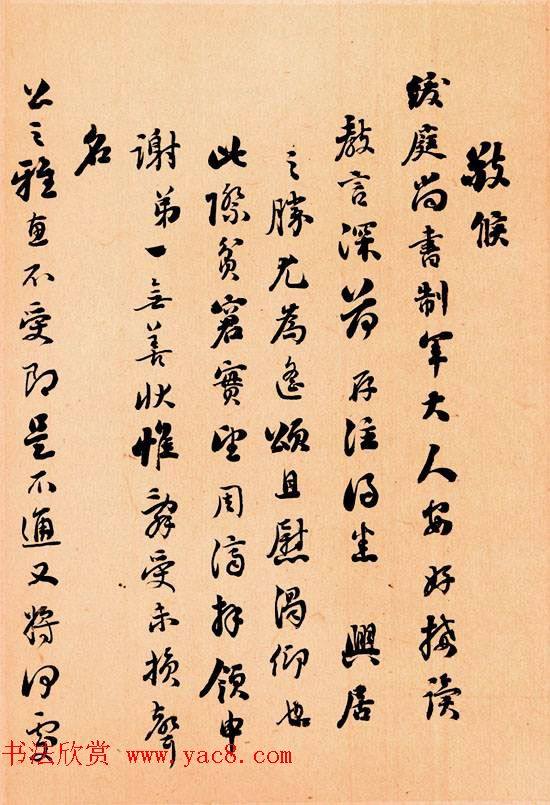 敬候
緩庭尚書制军大人安好接读
教言深荷存注得悉興居
之勝尤為遥頌且慰渴仰也
此際貧窘實望周濟拜領申
謝弟一無善狀惟辭受未損聲
名
公之雅直不受即是不通又將何受
书法欣赏 www.yac8.com